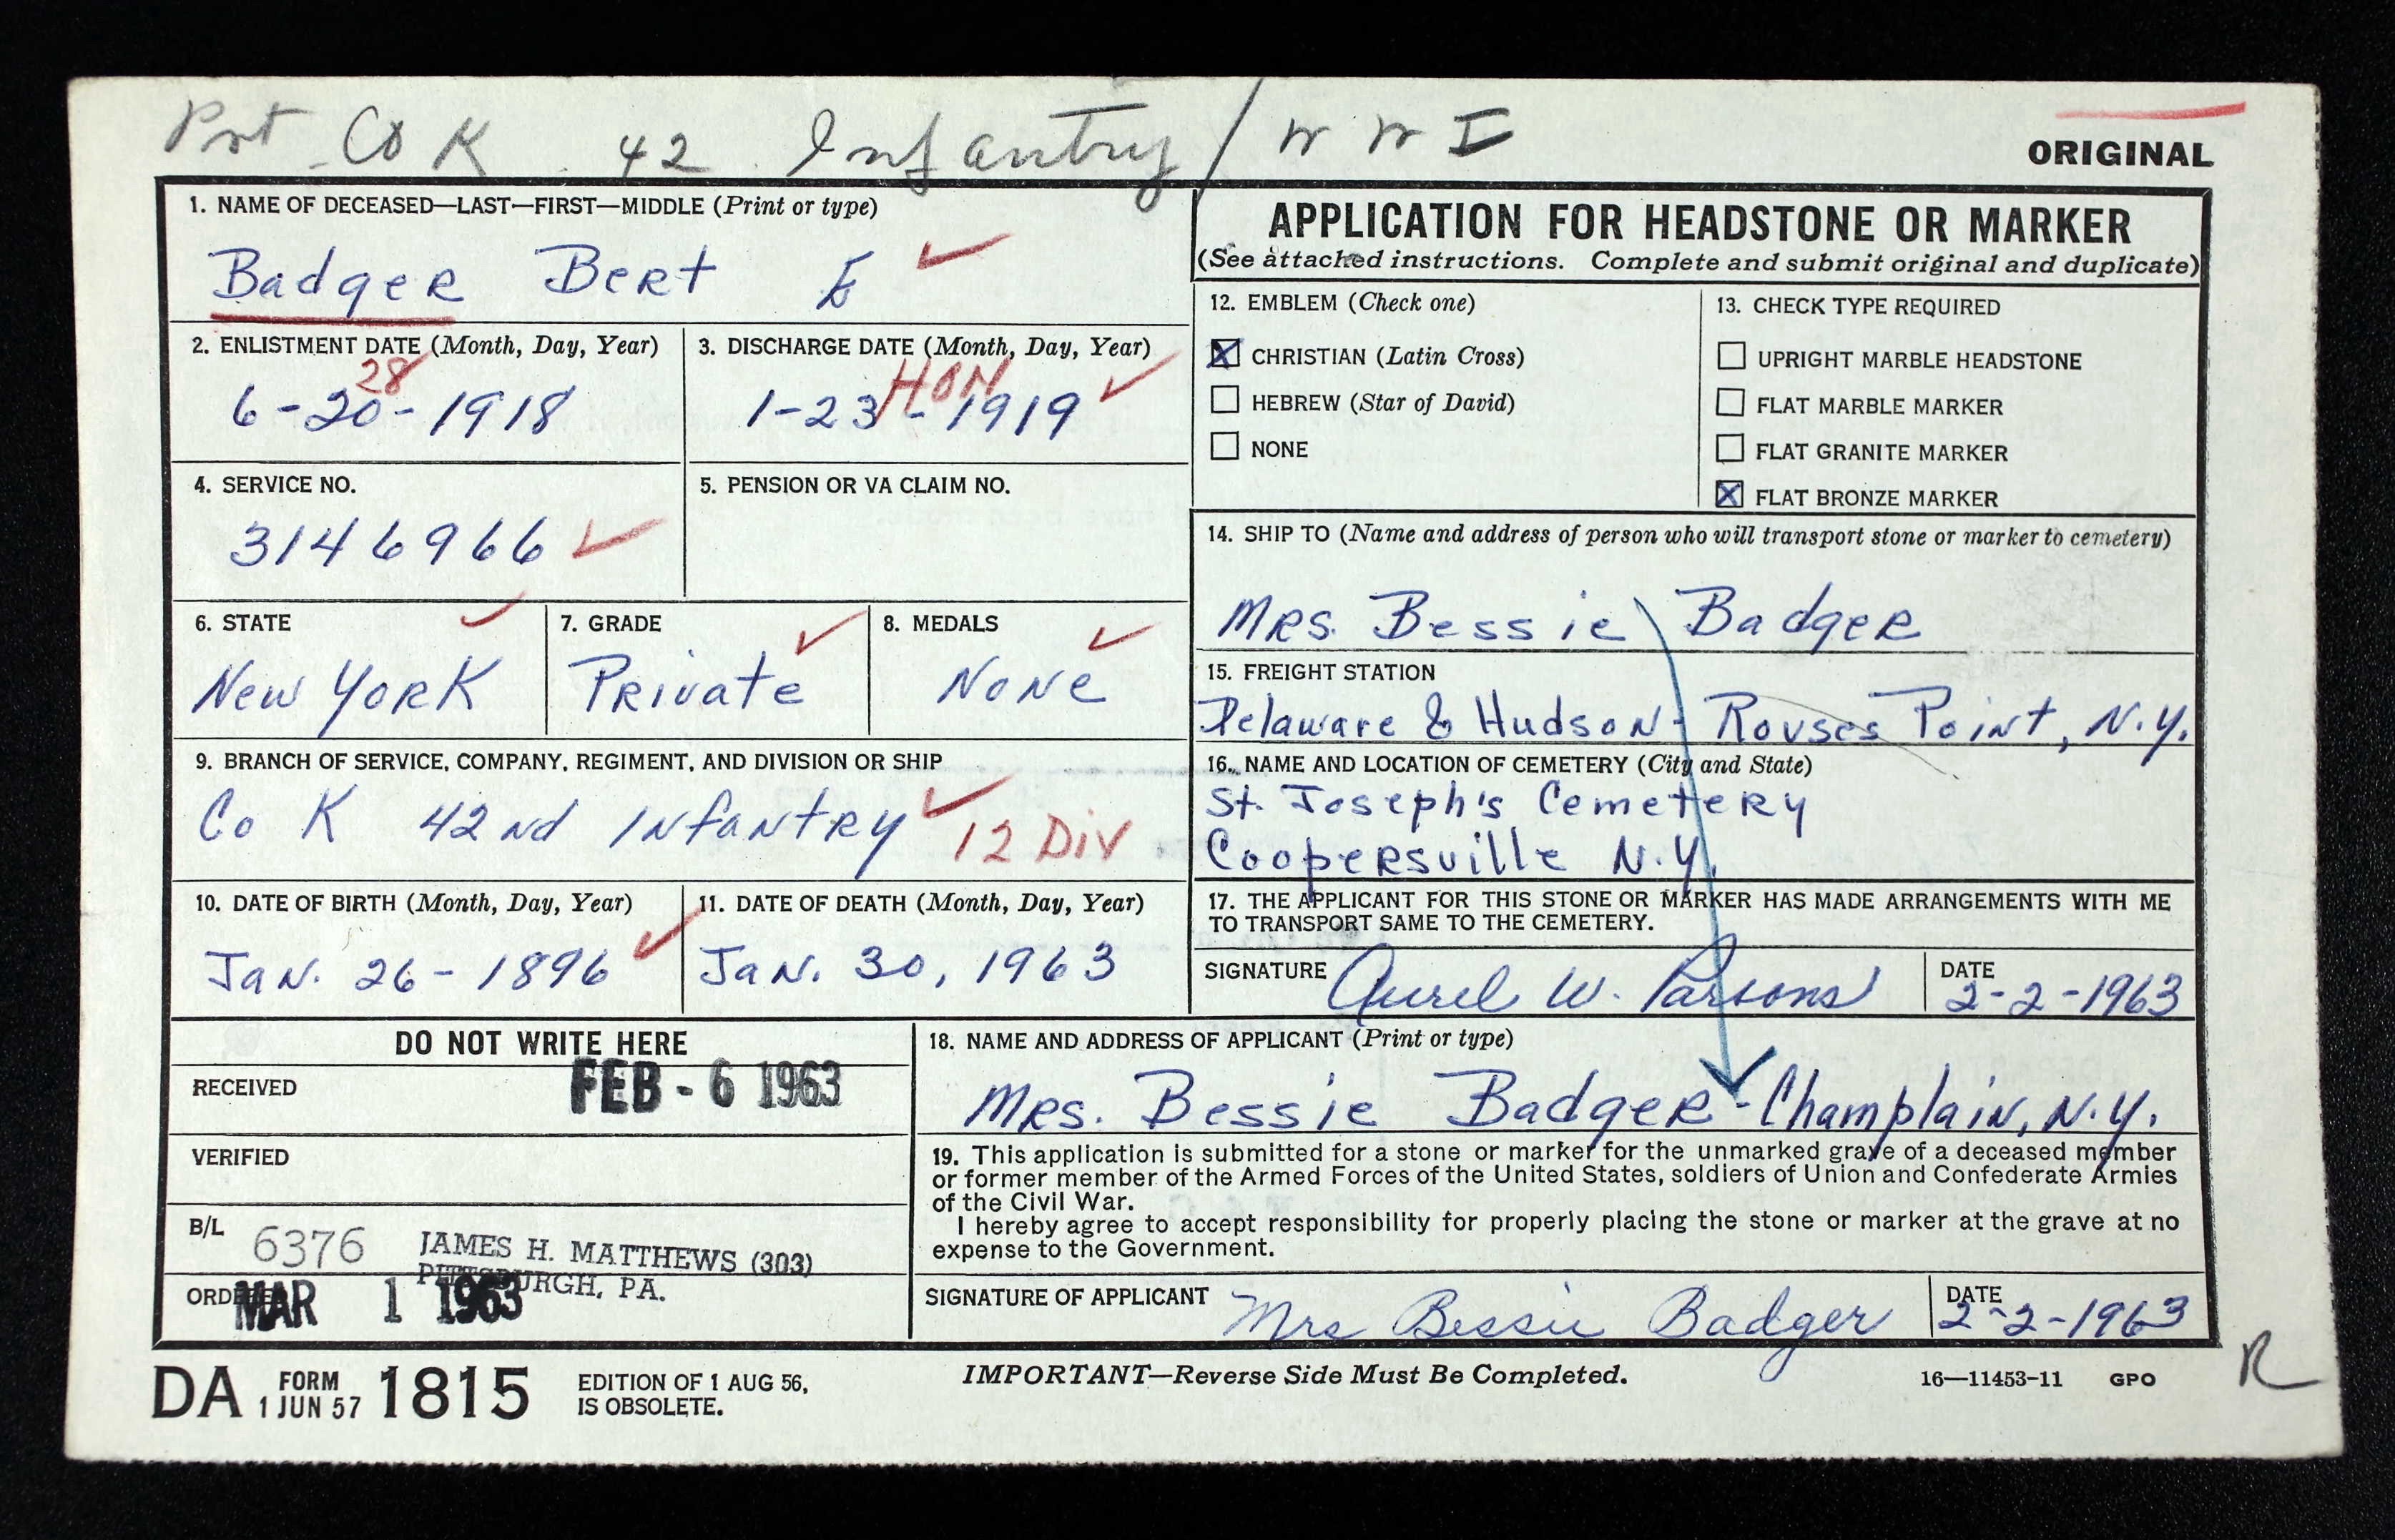 Pvt Co K 42 Infantry / W W I
ORIGINAL
1. NAME OF DECEASED—LAST—FIRST—MIDDLE (Print or type)
Badger Bert E
2. ENLISTMENT DATE (Month, Day, Year)
28
6-20-1918
3. DISCHARGE DATE (Month, Day, Year)
HON
1-23-1919
4. SERVICE NO.
3146966
5. PENSION OR VA CLAIM NO.
6. STATE
New York
7. GRADE
Private
8. MEDALS
None
9. BRANCH OF SERVICE, COMPANY, REGIMENT, AND DIVISION OR SHIP
Co K 42nd Infantry 12 Div
10. DATE OF BIRTH (Month, Day, Year)
Jan. 26-1896
11. DATE OF DEATH (Month, Day, Year)
Jan. 30, 1963
DO NOT WRITE HERE
RECEIVED FEB - 6 1963
VERIFIED
B/L 6376 JAMES H. MATTHEWS (303)
PITTSBURGH, PA.
ORDERED MAR 1 1963
APPLICATION FOR HEADSTONE OR MARKER
(See attached instructions. Complete and submit original and duplicate)
12. EMBLEM (Check one)
CHRISTIAN (Latin Cross)
HEBREW (Star of David)
NONE
13. CHECK TYPE REQUIRED
UPRIGHT MARBLE HEADSTONE
FLAT MARBLE MARKER
FLAT GRANITE MARKER
FLAT BRONZE MARKER
14. SHIP TO (Name and address of person who will transport stone or marker to cemetery)
Mrs. Bessie Badger
15. FREIGHT STATION
Delaware & Hudson - Rouses Point, N.Y.
16. NAME AND LOCATION OF CEMETERY (City and State)
St. Joseph's Cemetery
Coopersville N.Y.
17. THE APPLICANT FOR THIS STONE OR MARKER HAS MADE ARRANGEMENTS WITH ME
TO TRANSPORT SAME TO THE CEMETERY.
SIGNATURE Aurel W. Parsons DATE 2-2-1963
18. NAME AND ADDRESS OF APPLICANT (Print or type)
Mrs. Bessie Badger - Champlain, N.Y.
19. This application is submitted for a stone or marker for the unmarked grave of a deceased member
or former member of the Armed Forces of the United States, soldiers of Union and Confederate Armies
of the Civil War.
I hereby agree to accept responsibility for properly placing the stone or marker at the grave at no
expense to the Government.
SIGNATURE OF APPLICANT Mrs Bessie Badger DATE 2-2-1963
DA FORM 1 JUN 57 1815 EDITION OF 1 AUG 56,
IS OBSOLETE.
IMPORTANT—Reverse Side Must Be Completed.
16—11453-11 GPO
R